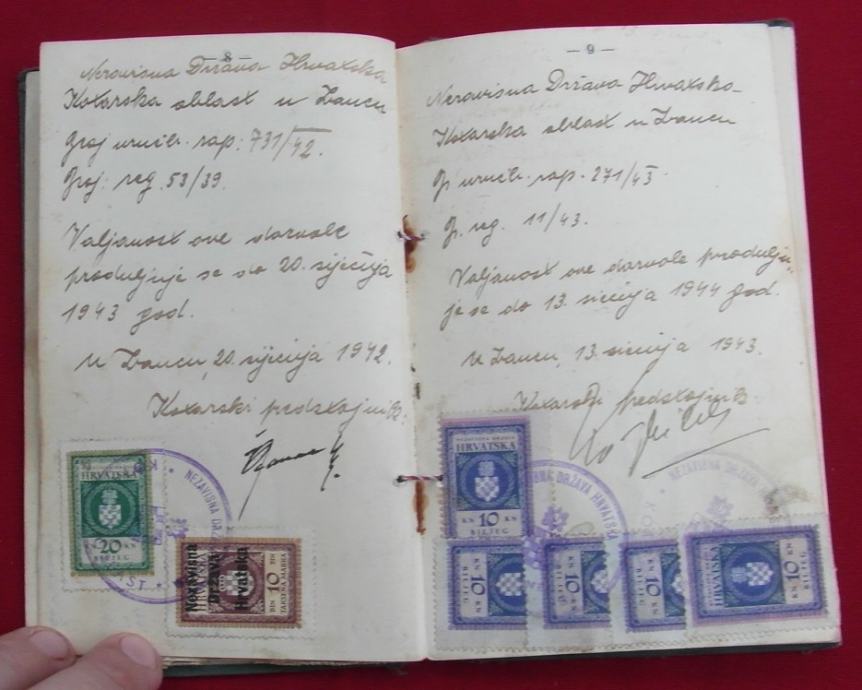 — 8 —
Nezavisna Država Hrvatska
Kotarska oblast u Ivancu
Broj urudb. zap: 731/42.
Broj: reg. 53/39.
Valjanost ove dozvole
produljuje se do 20. siječnja
1943 god.
U Ivancu, 20. siječnja 1942.
Kotarski predstojnik:
HRVATSKA
KN 20 KN
BILJEG
Nezavisna
Država
Hrvatska
DIN 10 DIN
TAKSENA MARKA
NEZAVISNA
— 9 —
Nezavisna Država Hrvatska
Kotarska oblast u Ivancu
Br. urudb. zap. 271/43.
Br. reg. 11/43.
Valjanost ove dozvole produlju
je se do 13. siečnja 1944 god.
U Ivancu, 13. siečnja 1943.
Kotarski predstojnik:
NEZAVISNA DRŽAVA
HRVATSKA
KN 10 KN
BILJEG
NEZAVISNA DRŽAVA HRVATSKA
NEZAVISNA DRŽAVA HRVATSKA
10 KN
BILJEG
10 KN
BILJEG
10 KN
BILJEG
HRVATSKA
KN 10 KN
BILJEG